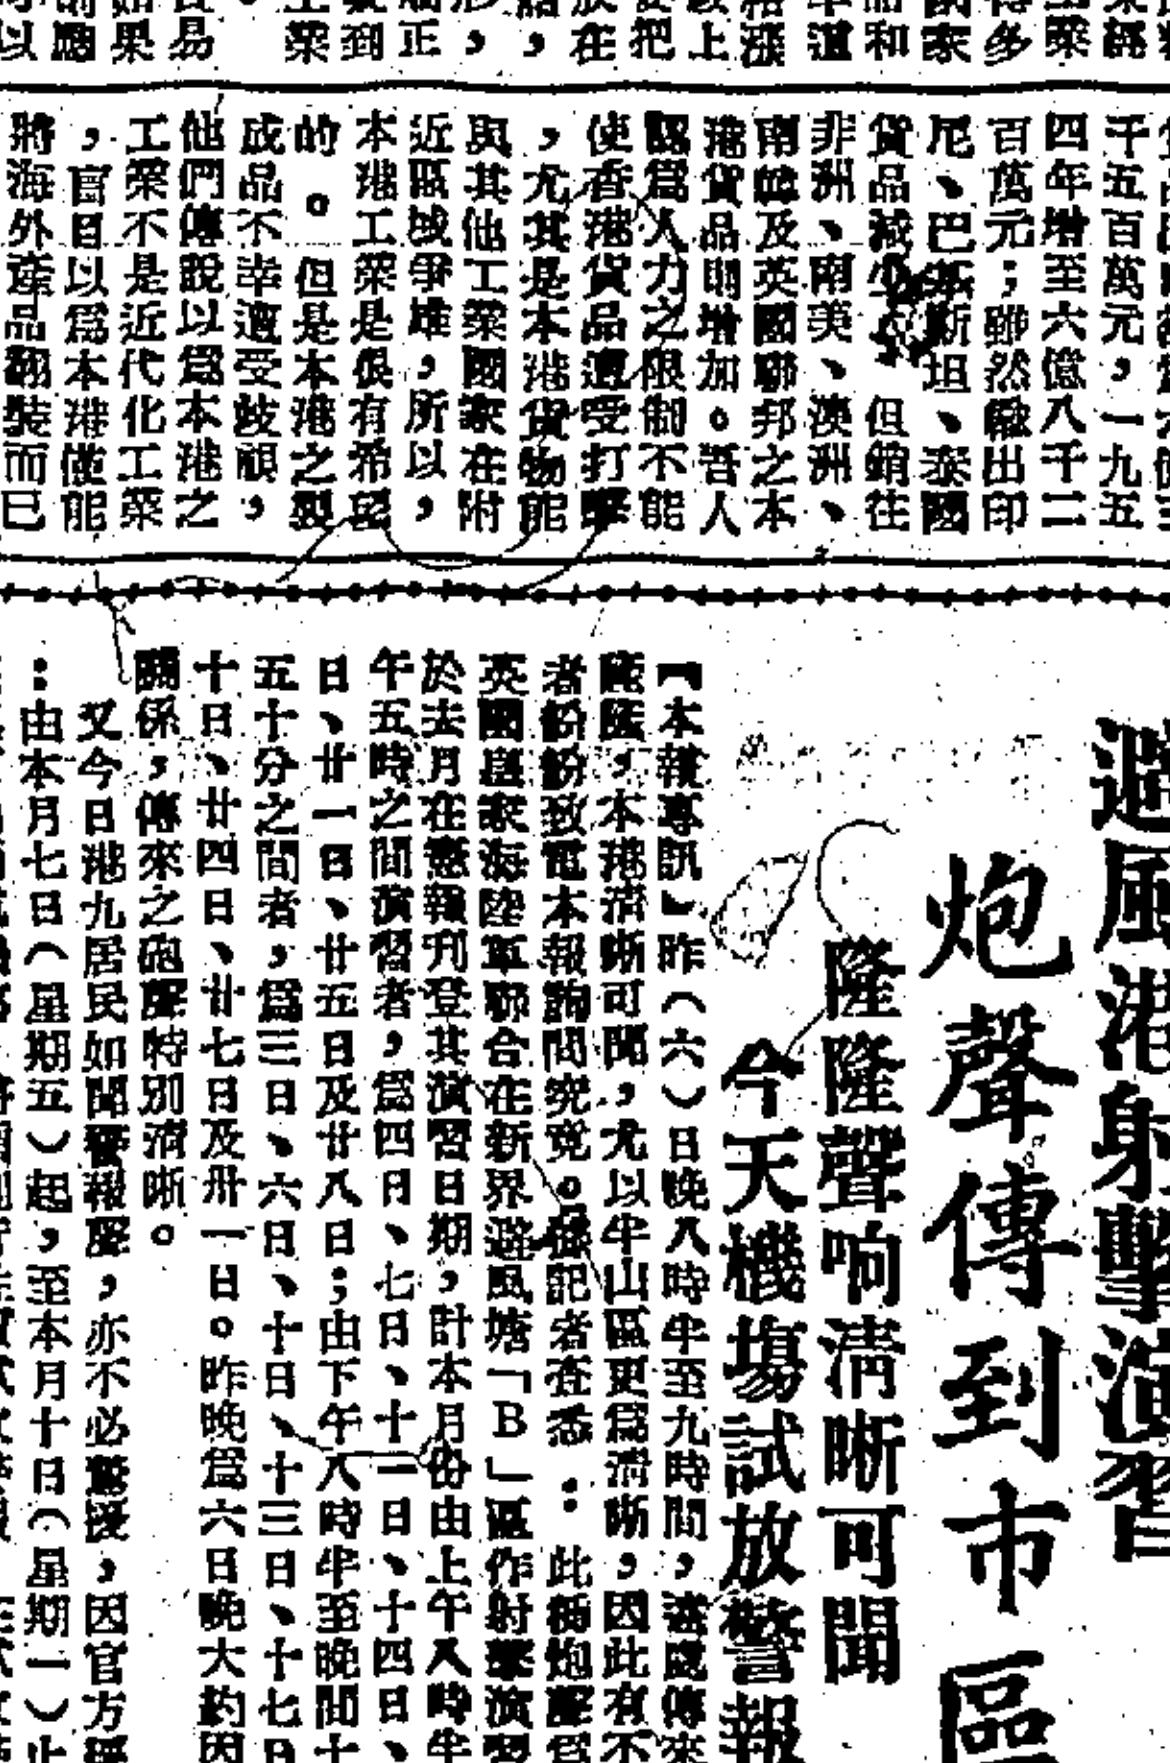 千五百萬元，一九五
四年增至六億八千二
百萬元；雖然輸出印
尼、巴基斯坦、泰國
貨品減少　但銷往
非洲、南美、澳洲、
南韓及英國聯邦之本
港貨品則增加。吾人
認爲人力之限制不能
使香港貨品遭受打擊
，尤其是本港貨物能
與其他工業國家在附
近區域爭雄，所以，
本港工業是很有希望
的。但是本港之製
成品不幸遭受歧視，
他們傳說以爲本港之
工業不是近代化工業
，盲目以爲本港僅能
將海外產品翻裝而已
避風港射擊演習
炮聲傳到市區
隆隆聲响清晰可聞
今天機塲試放警報
【本報專訊】昨（六）日晚八時半至九時間，遠處傳來
隆隆，本港清晰可聞，尤以半山區更爲清晰，因此有不
者紛紛致電本報詢問究竟。據記者查悉：此種炮聲爲
英國皇家海陸軍聯合在新界避風塘「B」區作射擊演習
於去月在憲報刊登其演習日期，計本月份由上午八時半
午五時之間演習者，爲四日、七日、十一日、十四日、
日、廿一日、廿五日及廿八日；由下午八時半至晚間十
五十分之間者，爲三日、六日、十日、十三日、十七日
十日、廿四日、廿七日及卅一日。昨晚爲六日晚大約因
關係，傳來之砲聲特別清晰。
又今日港九居民如聞警報聲，亦不必驚擾，因官方
：由本月七日（星期五）起，至本月十日（星期一）止